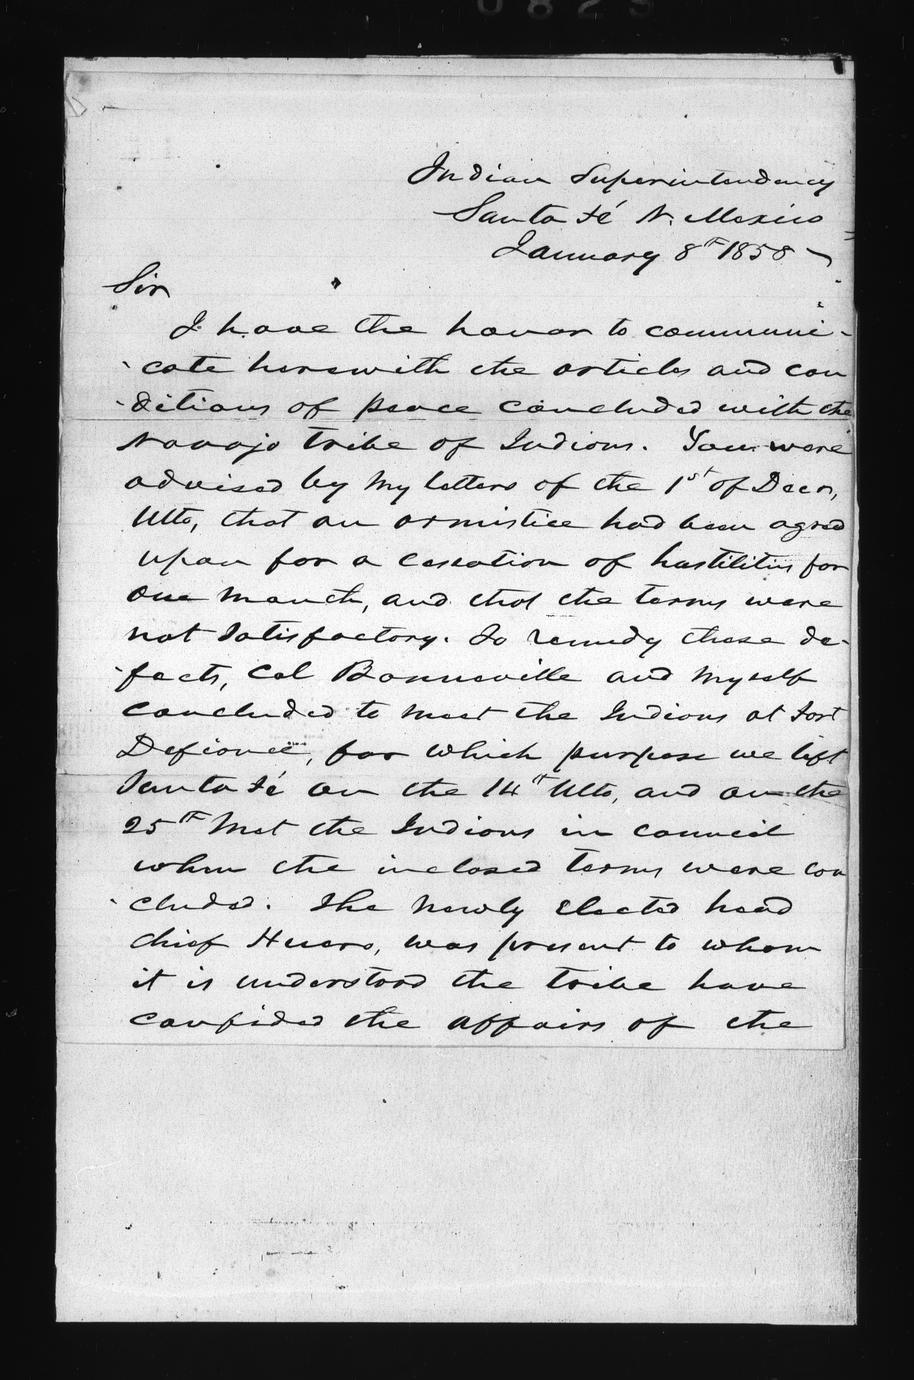 0823
Indian Superintendency
Santa Fé N. Mexico
January 8th 1858
Sir
I have the honor to communi-
-cate herewith the articles and con
-ditions of peace concluded with the
Navajo tribe of Indians. You were
advised by my letters of the 1st of Decr,
Ulto, that an armistice had been agreed
upon for a cessation of hostilities for
one month, and that the terms were
not satisfactory. To remedy these de-
-fects, Col Bonneville and myself
concluded to meet the Indians at Fort
Defiance, for which purpose we left
Santa Fé on the 14th Ulto, and on the
25th met the Indians in council
when the inclosed terms were con
-cluded. The newly elected head
chief Huero, was present to whom
it is understood the tribe have
confided the affairs of the